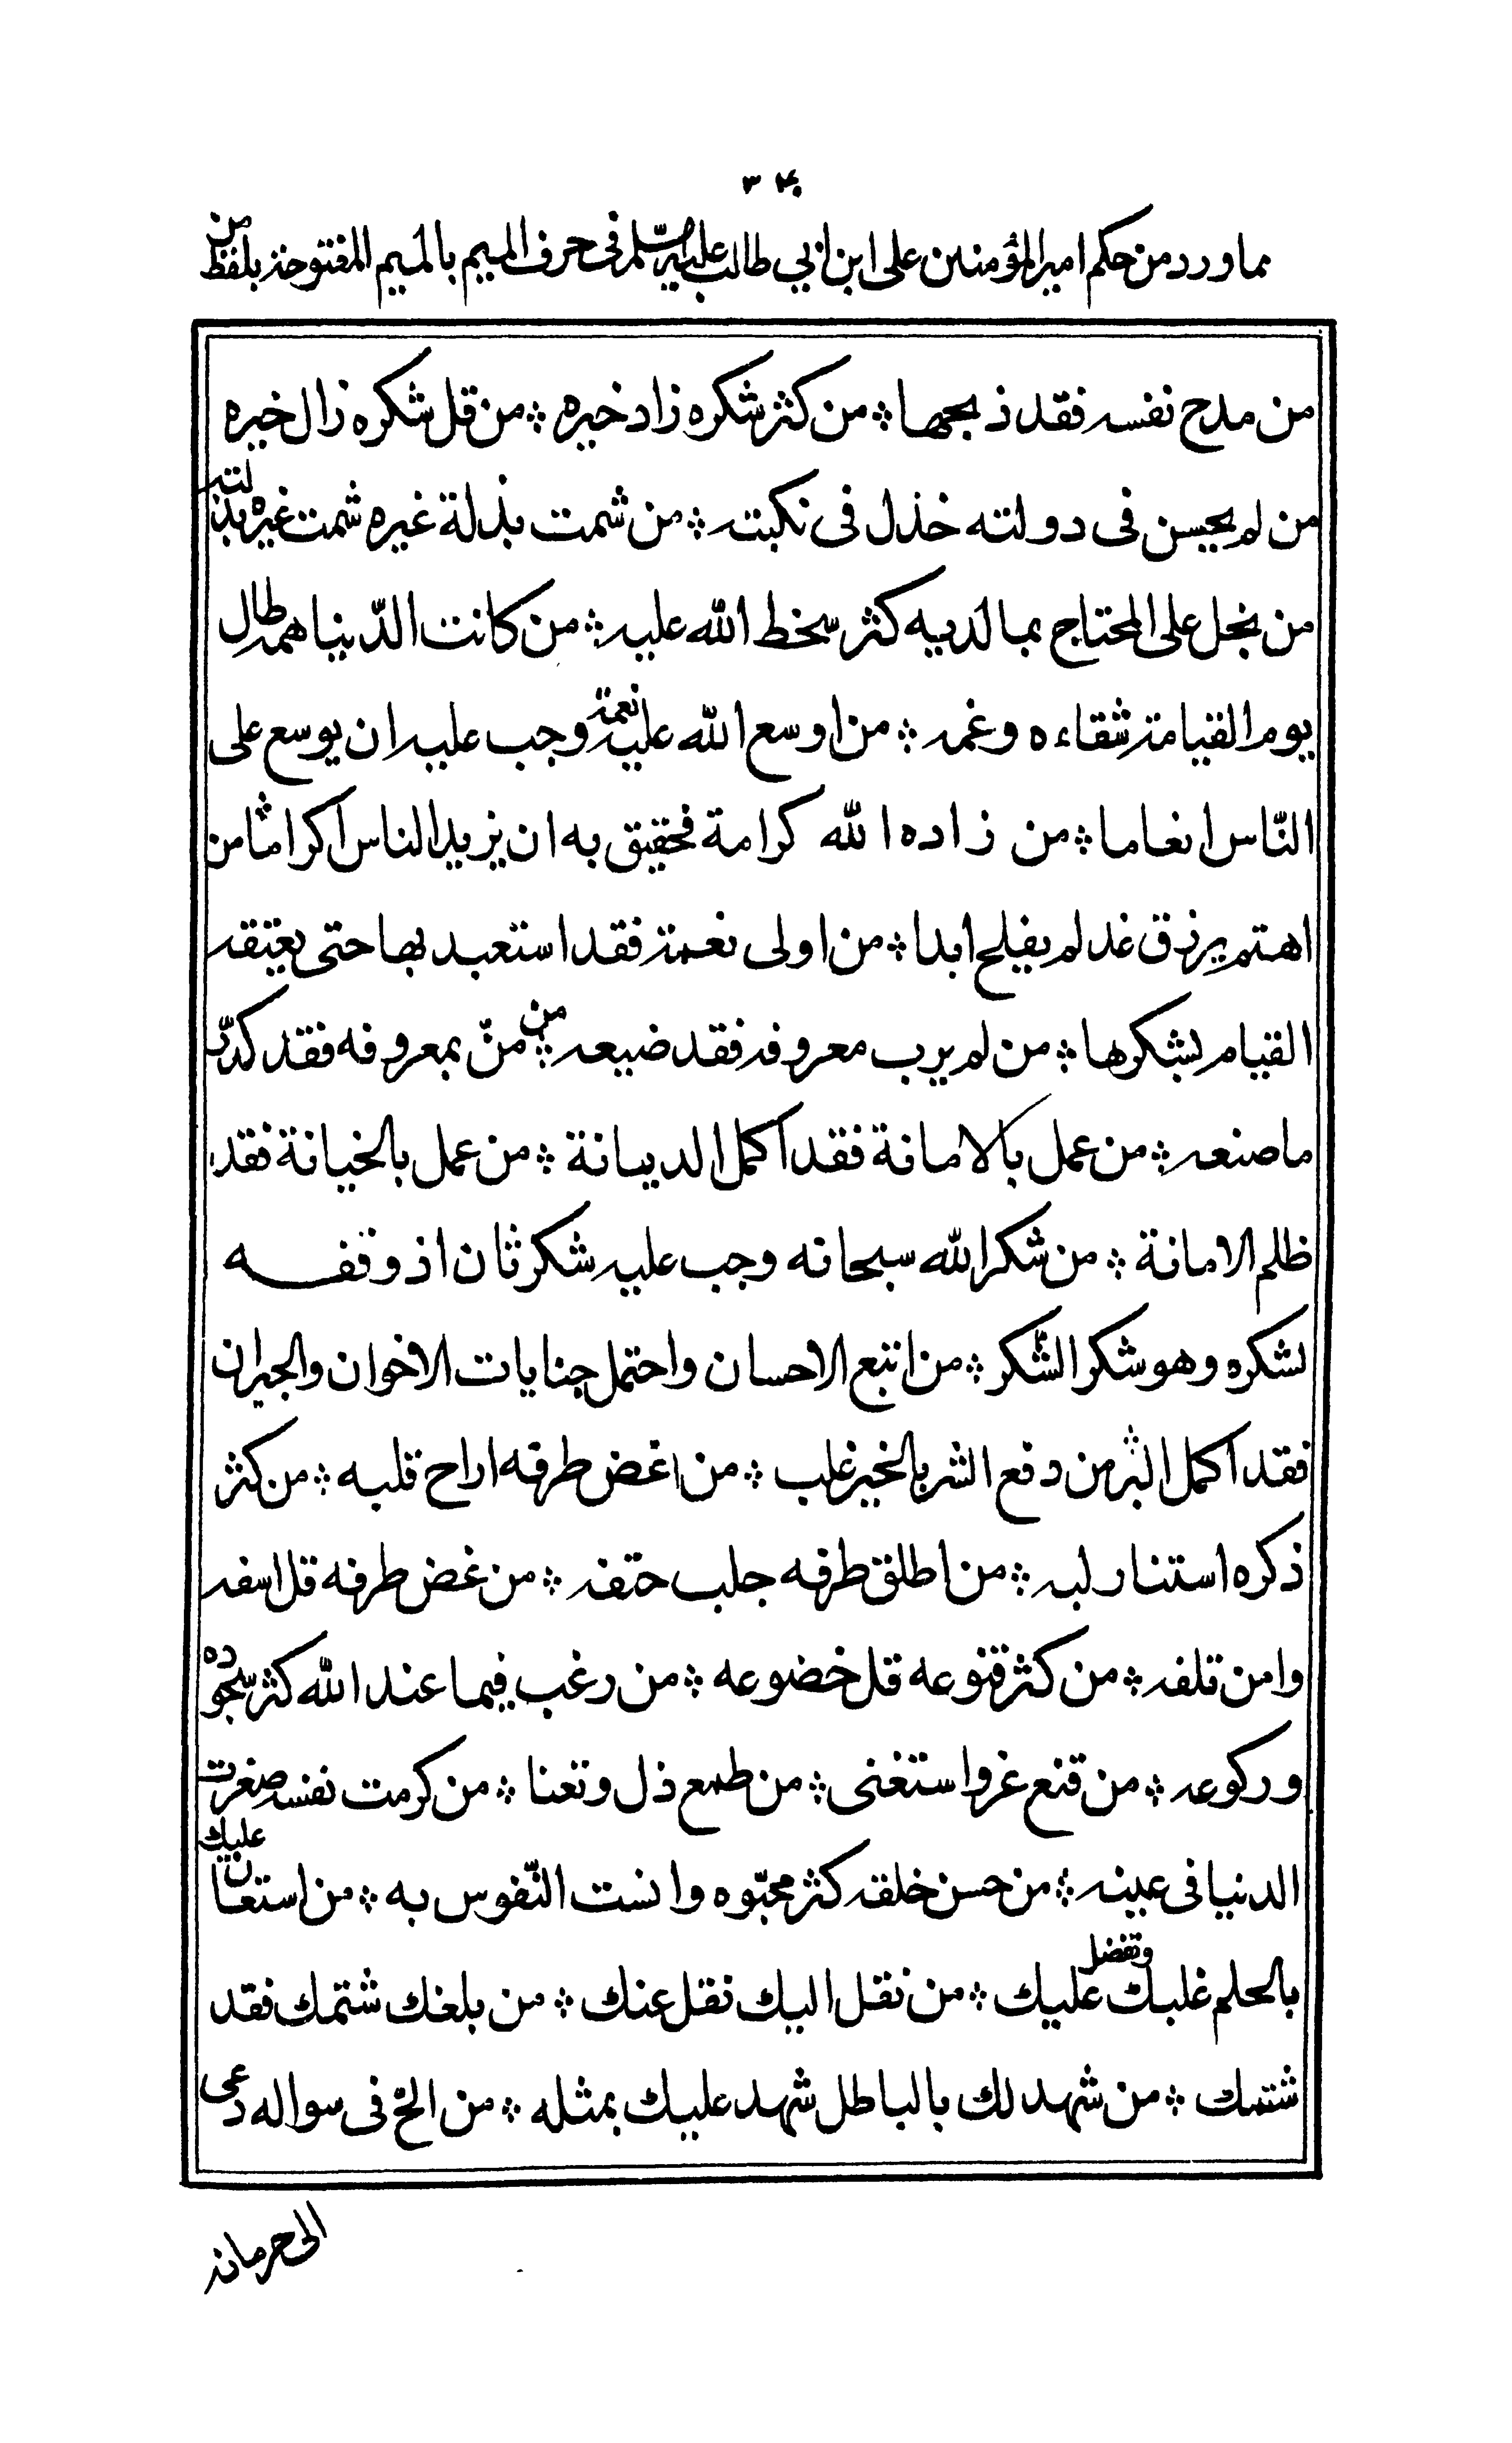 ٣٠٤
مما ورد من حكم امير المؤمنين على ابن ابي طالب عليه السّلم فى حرف الميم بالميم المفتوحة بلفظ من
من مدح نفسه فقد ذبحها ؞ من كثر شكره زاد خيره ؞ من قل شكره زال خيره
من لم يحسن فى دولته خذل فى نكبته ؞ من شمت بذلة غيره شمت غيره بذلته
من بخل على المحتاج بما لديه كثر سخط الله عليه ؞ من كانت الدّنيا همه طال
يوم القيامة شقاءه وغمه ؞ من اوسع الله عليه نعمة وجب عليه ان يوسع على
النّاس انعاما ؞ من زاده الله كرامة فحقيق به ان يزيد الناس اكراما ؞ من
اهتم برزق غد لم يفلح ابدا ؞ من اولى نعمة فقد استعبد بها حتى يعتقه
القيام بشكرها ؞ من لم يرب معروفه فقد ضيعه ؞ من منّ بمعروفه فقد كدّر
ما صنعه ؞ من عمل بالامانة فقد اكمل الديانة ؞ من عمل بالخيانة فقد
ظلم الامانة ؞ من شكر الله سبحانه وجب عليه شكر ثان اذ وفقه
لشكره وهو شكر الشّكر ؞ من اتبع الاحسان واحتمل جنايات الاخوان والجيران
فقد اكمل البر ؞ من دفع الشر بالخير غلب ؞ من اغض طرفه اراح قلبه ؞ من كثر
ذكره استنار لبه ؞ من اطلق طرفه جلب حتفه ؞ من غض طرفه قل اسفه
وامن تلفه ؞ من كثر قنوعه قل خضوعه ؞ من رغب فيما عند الله كثر سجوده
وركوعه ؞ من قنع عز واستغنى ؞ من طمع ذل وتعنا ؞ من كرمت نفسه صغرت
الدنيا فى عينه ؞ من حسن خلقه كثر محبّوه وانست النّفوس به ؞ من استعان عليك
بالحلم غلبك وتفضل عليك ؞ من نقل اليك نقل عنك ؞ من بلغك شتمك فقد
شتمك ؞ من شهد لك بالباطل شهد عليك بمثله ؞ من الحّ فى سواله دعى
الى حرمانه